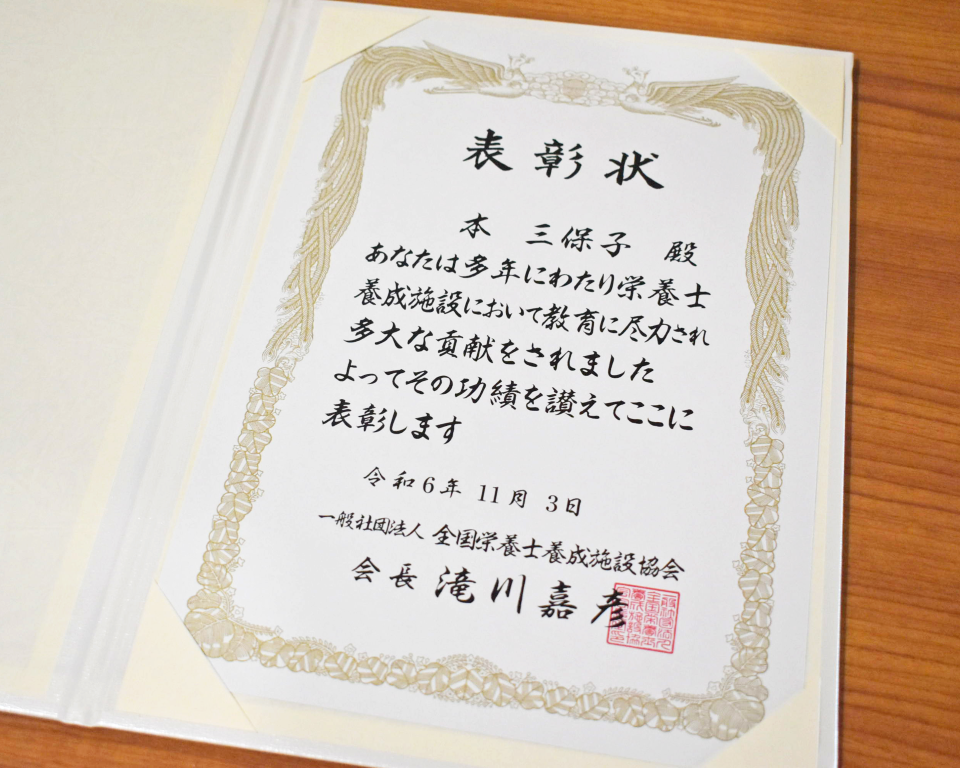 表彰状
本 三保子 殿
あなたは多年にわたり栄養士
養成施設において教育に尽力され
多大な貢献をされました
よってその功績を讃えてここに
表彰します
令和6年 11月 3日
一般社団法人 全国栄養士養成施設協会
会長 滝川嘉彦